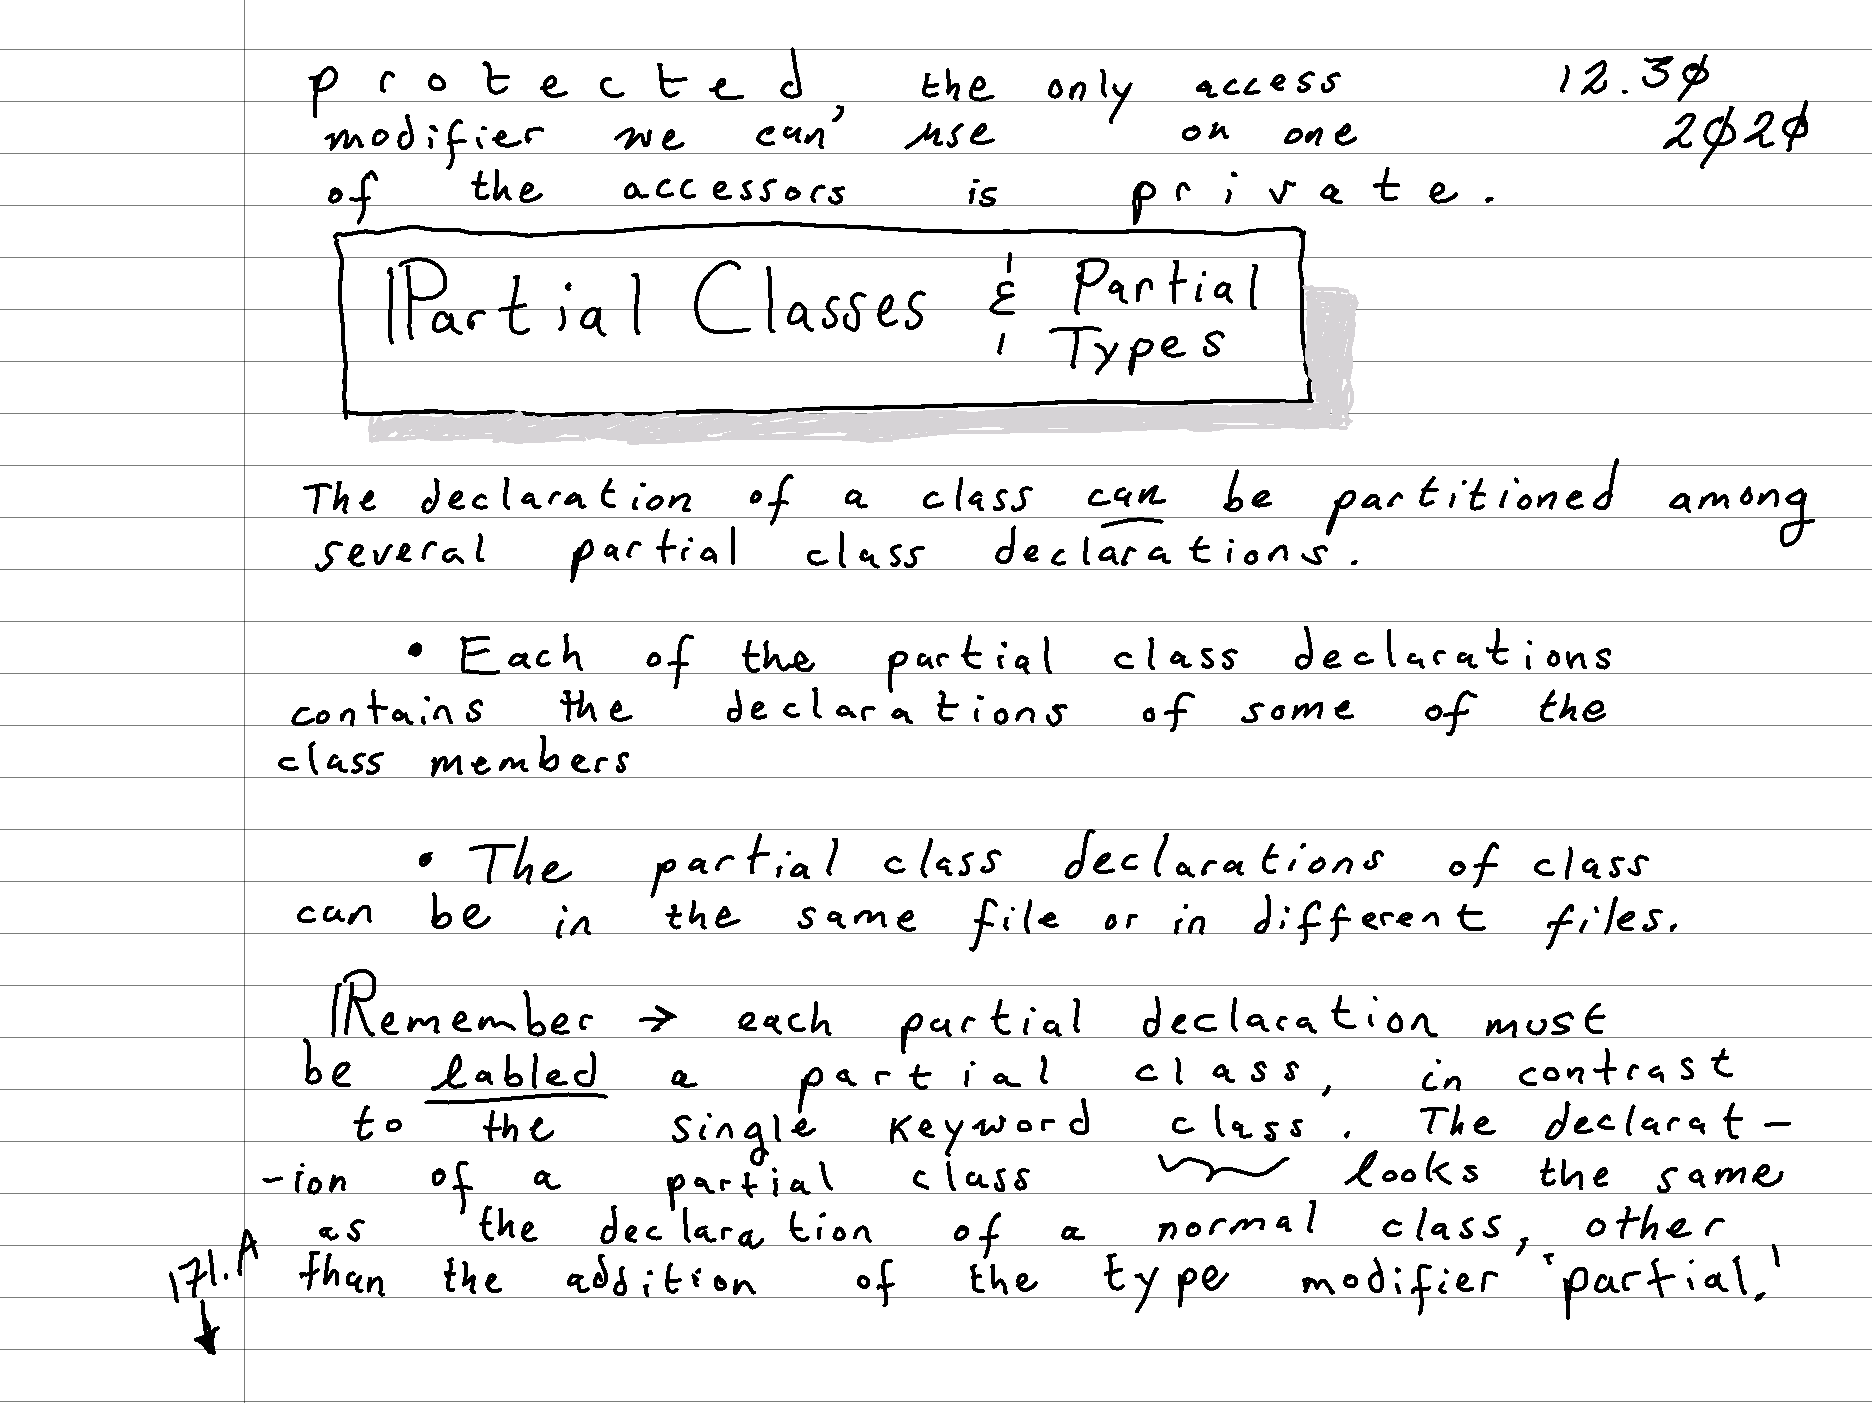 protected, the only access 12.30
modifier we can use on one 2020
of the accessors is private.
Partial Classes & Partial
Types
The declaration of a class can be partitioned among
several partial class declarations.
• Each of the partial class declarations
contains the declarations of some of the
class members
• The partial class declarations of class
can be in the same file or in different files.
Remember → each partial declaration must
be labled a partial class, in contrast
to the single keyword class. The declarat-
-ion of a partial class looks the same
as the declaration of a normal class, other
than the addition of the type modifier 'partial.'
171.A